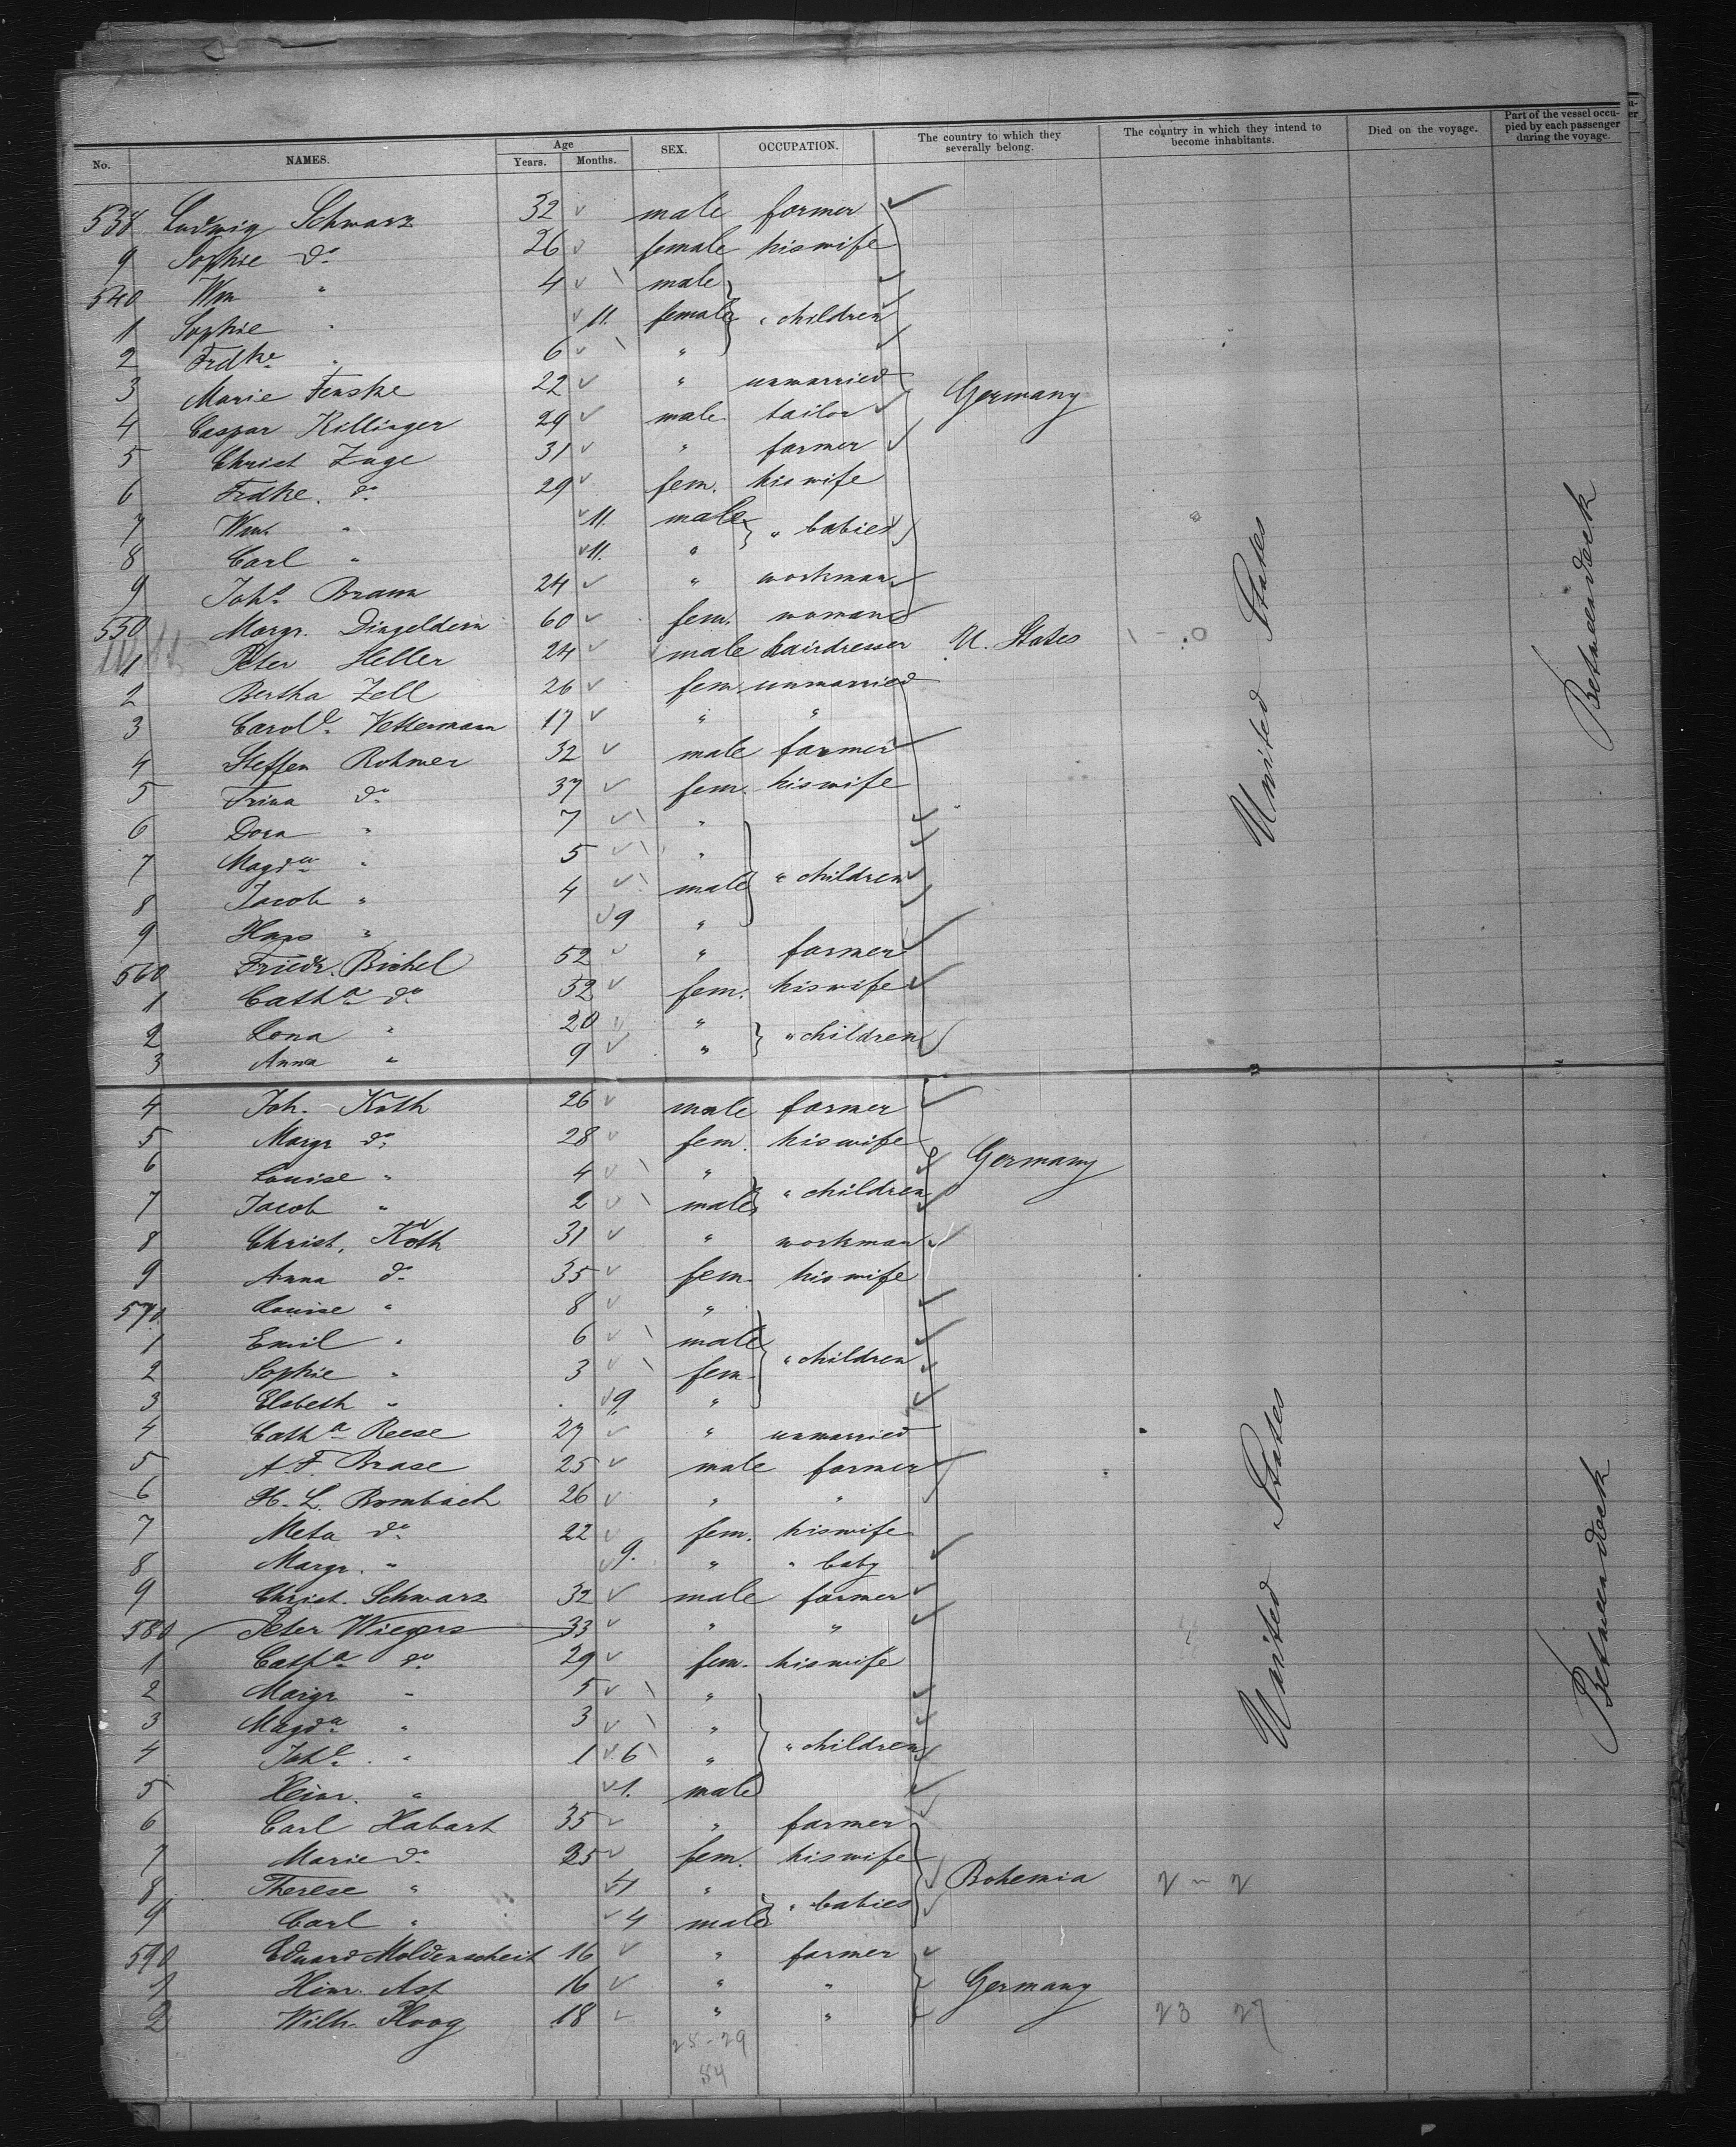 No. NAMES. Age Years. Months. SEX. OCCUPATION. The country to which they severally belong. The country in which they intend to become inhabitants. Died on the voyage. Part of the vessel occupied by each passenger during the voyage.
538 Ludwig Schwarz 32 male farmer
9 Sophie do 26 female his wife
540 Wm " 4 male
1 Sophie " 11. female " children
2 Frdke " 6 "
3 Marie Fenske 22 " unmarried Germany
4 Caspar Killinger 29 male tailor
5 Christ Zuge 31 " farmer
6 Frdke. do 29 fem. his wife
7 Wm. " 11. male " babies
8 Carl " 11. "
9 Joha Braun 24 " workman
550 Margr. Dingeldein 60 fem. woman
1 Peter Heller 24 male hairdresser U. States 1 - 0
2 Bertha Zell 26 fem unmarried
3 Carole Vettermann 17 " "
4 Steffen Rohwer 32 male farmer
5 Trina do 37 fem. his wife
6 Dora " 7 "
7 Magda " 5 "
8 Jacob " 4 male " children
9 Hans " 9 "
560 Friedr. Bichel 52 " farmer
1 Catha do 52 fem. his wife
2 Lona " 20 " " children
3 Anna " 9 "
4 Joh. Koth 26 male farmer
5 Margr do 28 fem. his wife Germany
6 Louise " 4 "
7 Jacob " 2 male " children
8 Christ. Koth 31 " workman
9 Anna do 35 fem. his wife
570 Louise " 8 "
1 Emil " 6 male
2 Sophie " 3 fem. " children
3 Elsbeth " 9. "
4 Catha Reese 27 " unmarried
5 A. F. Brase 25 male farmer
6 H. L. Rombach 26 " "
7 Meta do 22 fem. his wife
8 Margr. " 9. " " baby
9 Christ. Schwarz 32 male farmer
580 Peter Wiegers 33 " "
1 Catha do 29 fem. his wife
2 Margr " 5 "
3 Magda " 3 "
4 Johe " 1 6 " " children
5 Heinr. " 1. male
6 Carl Habart 35 " farmer
7 Marie do 25 fem. his wife
8 Therese " 4 " " babies Bohemia 2 - 2
9 Carl " 4 male
590 Eduard Moldenscheit 16 " farmer
1 Hinr. Ast 16 " " Germany
2 Wilh. Ploog 18 " " 23 27
25-29
54
United States
Betweendeck
United States
Betweendeck